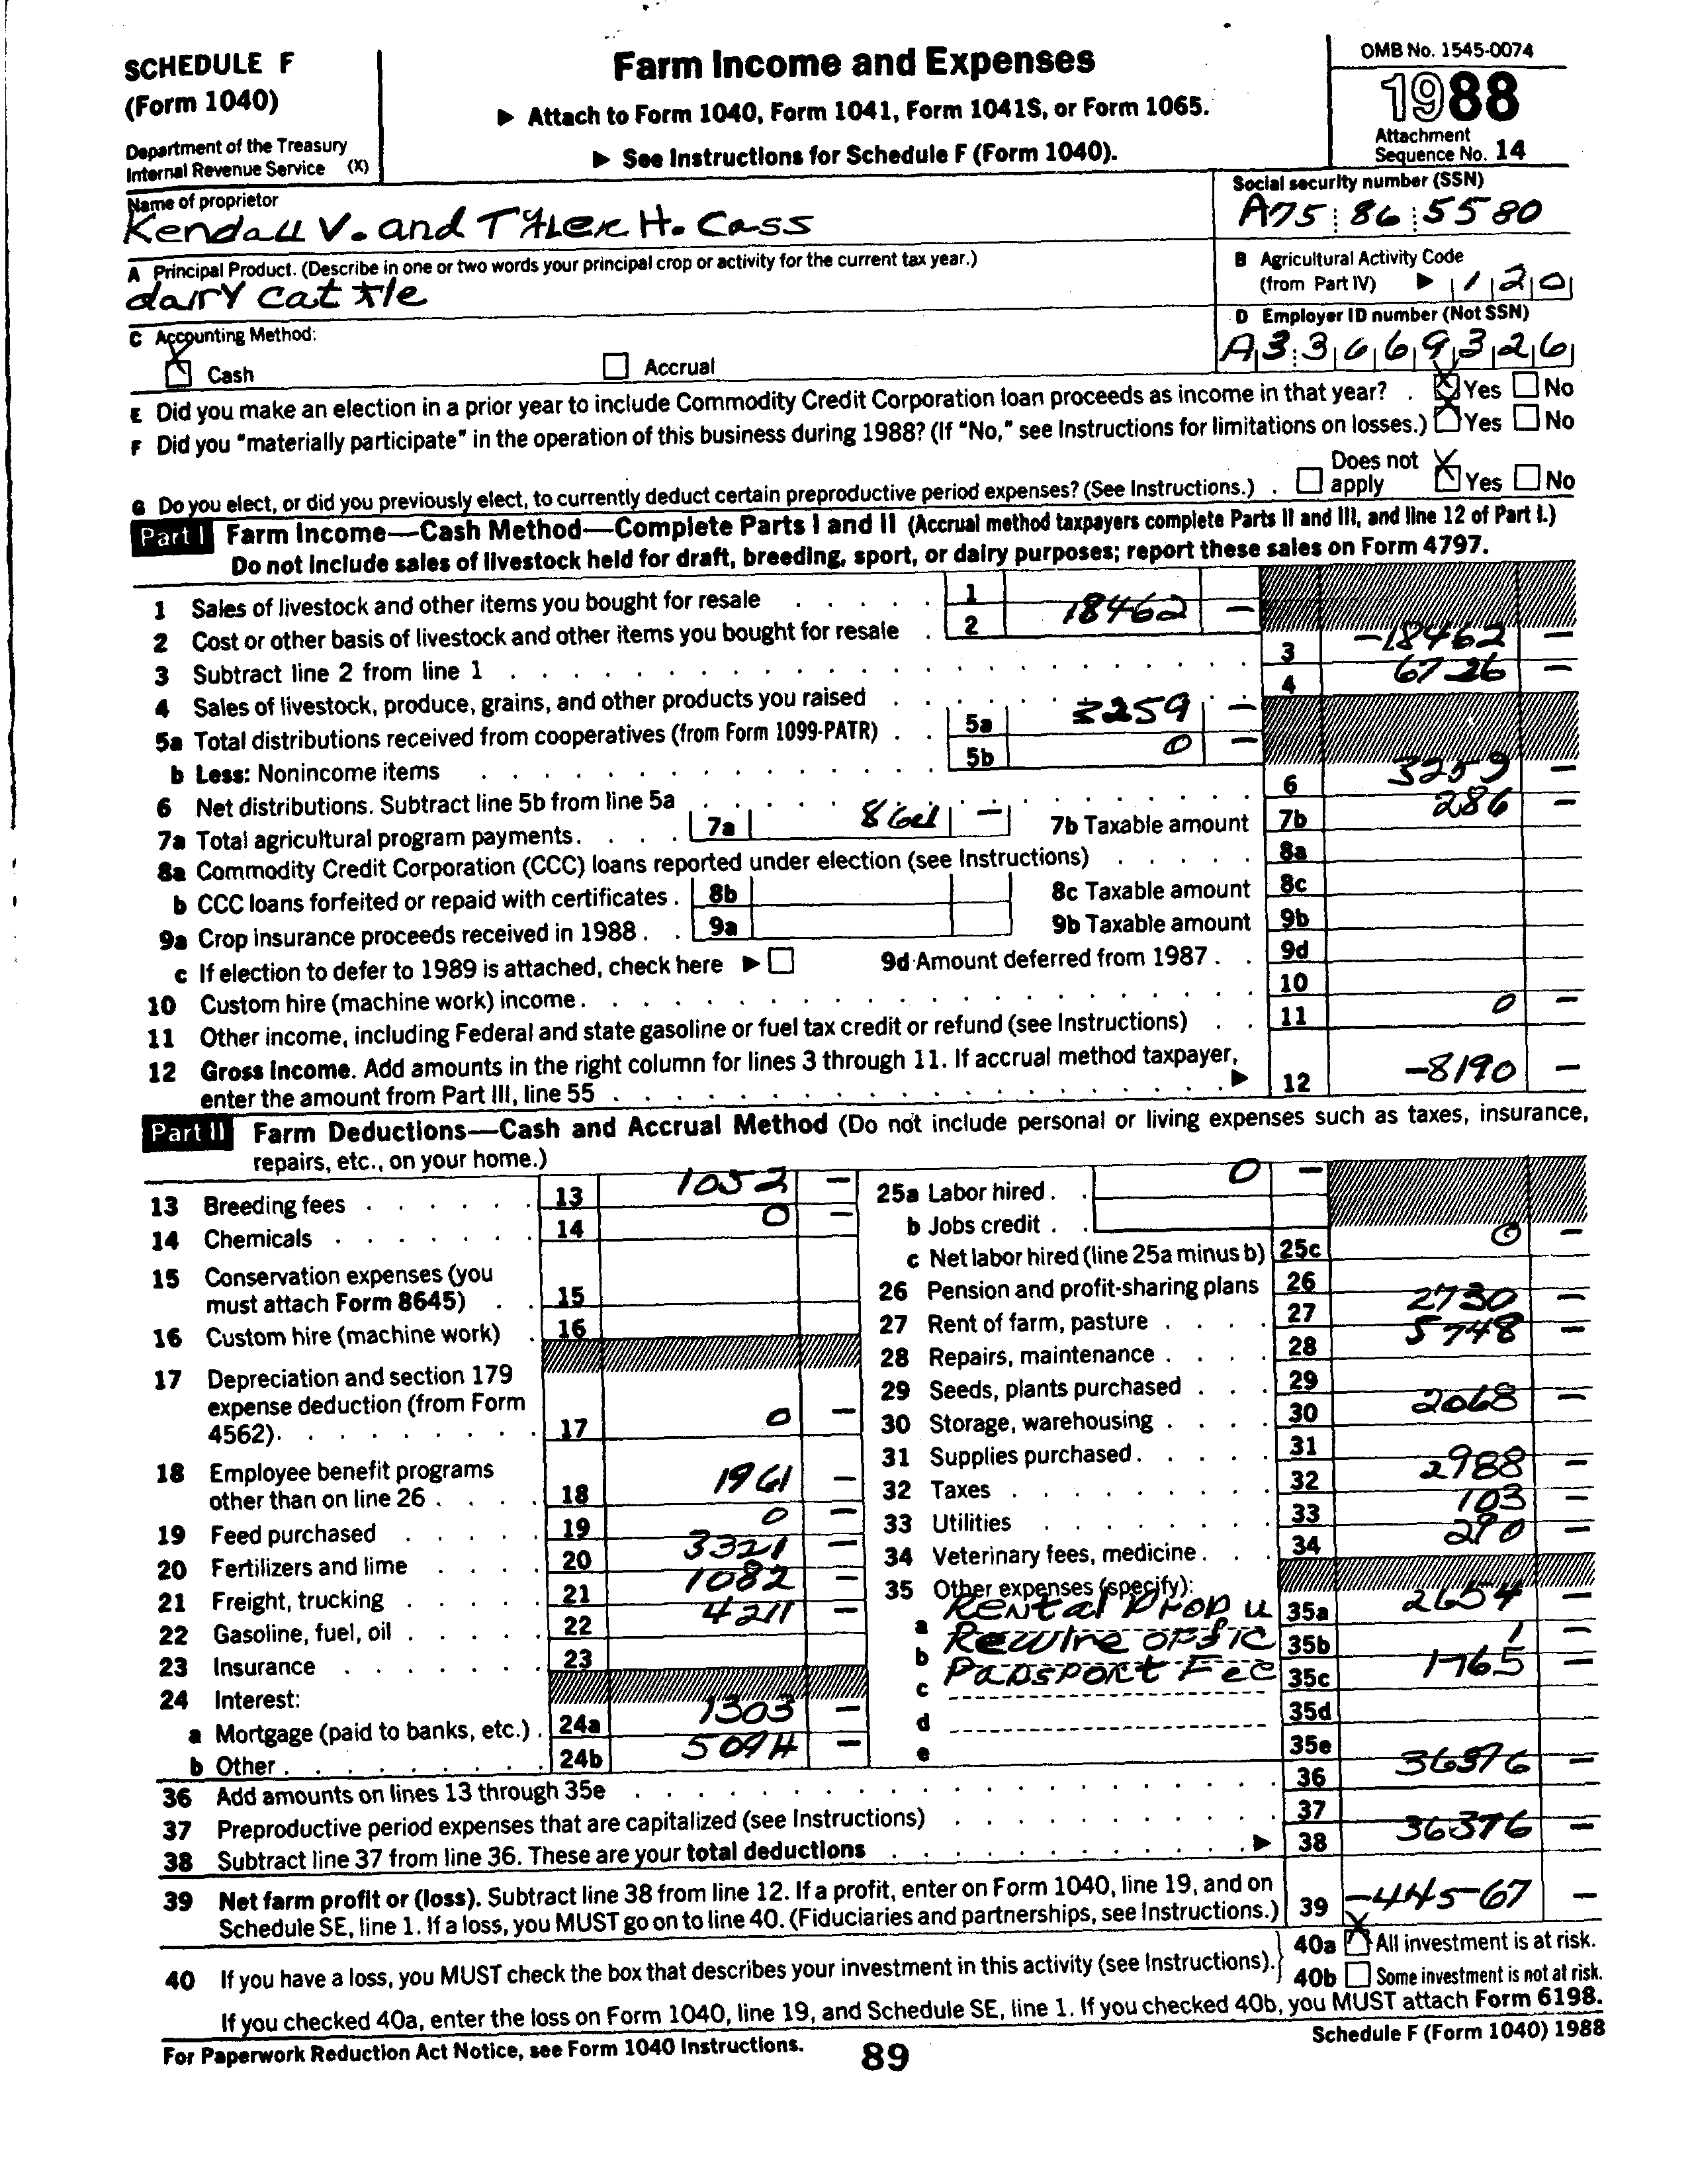 SCHEDULE F
(Form 1040)
Department of the Treasury
Internal Revenue Service (X)
Farm Income and Expenses
▶ Attach to Form 1040, Form 1041, Form 1041S, or Form 1065.
▶ See Instructions for Schedule F (Form 1040).
OMB No. 1545-0074
1988
Attachment
Sequence No. 14
Name of proprietor
Kendall V. and TYLER H. Cass
Social security number (SSN)
A75 86 5580
A Principal Product. (Describe in one or two words your principal crop or activity for the current tax year.)
dairy cattle
B Agricultural Activity Code
(from Part IV) ▶ 120
C Accounting Method:
X Cash Accrual
D Employer ID number (Not SSN)
A33669326
E Did you make an election in a prior year to include Commodity Credit Corporation loan proceeds as income in that year? . X Yes No
F Did you "materially participate" in the operation of this business during 1988? (If "No," see Instructions for limitations on losses.) X Yes No
G Do you elect, or did you previously elect, to currently deduct certain preproductive period expenses? (See Instructions.) . Does not apply X Yes No
Part I Farm Income—Cash Method—Complete Parts I and II (Accrual method taxpayers complete Parts II and III, and line 12 of Part I.)
Do not include sales of livestock held for draft, breeding, sport, or dairy purposes; report these sales on Form 4797.
1 Sales of livestock and other items you bought for resale 1
2 Cost or other basis of livestock and other items you bought for resale 2 18462 –
3 Subtract line 2 from line 1 3 -18462 –
4 Sales of livestock, produce, grains, and other products you raised 4 6726 –
5a Total distributions received from cooperatives (from Form 1099-PATR) 5a 3259 –
b Less: Nonincome items 5b 0 –
6 Net distributions. Subtract line 5b from line 5a 6 3259 –
7a Total agricultural program payments. 7a 861 – 7b Taxable amount 7b 286 –
8a Commodity Credit Corporation (CCC) loans reported under election (see Instructions) 8a
b CCC loans forfeited or repaid with certificates . 8b 8c Taxable amount 8c
9a Crop insurance proceeds received in 1988 . 9a 9b Taxable amount 9b
c If election to defer to 1989 is attached, check here ▶ 9d Amount deferred from 1987 . 9d
10 Custom hire (machine work) income. 10
11 Other income, including Federal and state gasoline or fuel tax credit or refund (see Instructions) 11 0 –
12 Gross income. Add amounts in the right column for lines 3 through 11. If accrual method taxpayer,
enter the amount from Part III, line 55 ▶ 12 -8190 –
Part II Farm Deductions—Cash and Accrual Method (Do not include personal or living expenses such as taxes, insurance,
repairs, etc., on your home.)
13 Breeding fees 13 1052 –
14 Chemicals 14 0 –
15 Conservation expenses (you
must attach Form 8645) 15
16 Custom hire (machine work) 16
17 Depreciation and section 179
expense deduction (from Form
4562). 17 0 –
18 Employee benefit programs
other than on line 26 18 1961 –
19 Feed purchased 19 0 –
20 Fertilizers and lime 20 3321 –
21 Freight, trucking 21 1082 –
22 Gasoline, fuel, oil 22 4211 –
23 Insurance 23
24 Interest:
a Mortgage (paid to banks, etc.) . 24a 1303 –
b Other 24b 5094 –
25a Labor hired 0 –
b Jobs credit
c Net labor hired (line 25a minus b) 25c 0 –
26 Pension and profit-sharing plans 26
27 Rent of farm, pasture 27 2730 –
28 Repairs, maintenance 28 5748 –
29 Seeds, plants purchased 29
30 Storage, warehousing 30 2068 –
31 Supplies purchased 31
32 Taxes 32 2988 –
33 Utilities 33 103 –
34 Veterinary fees, medicine 34 290 –
35 Other expenses (specify):
a Rental Prop u 35a 2654 –
b Rewire offic 35b 1 –
c Passport Fee 35c 1765 –
d 35d
e 35e
36 Add amounts on lines 13 through 35e 36 36376 –
37 Preproductive period expenses that are capitalized (see Instructions) 37
38 Subtract line 37 from line 36. These are your total deductions ▶ 38 36376 –
39 Net farm profit or (loss). Subtract line 38 from line 12. If a profit, enter on Form 1040, line 19, and on
Schedule SE, line 1. If a loss, you MUST go on to line 40. (Fiduciaries and partnerships, see Instructions.) 39 -44567 –
40 If you have a loss, you MUST check the box that describes your investment in this activity (see Instructions). 40a X All investment is at risk.
40b Some investment is not at risk.
If you checked 40a, enter the loss on Form 1040, line 19, and Schedule SE, line 1. If you checked 40b, you MUST attach Form 6198.
For Paperwork Reduction Act Notice, see Form 1040 Instructions.
89
Schedule F (Form 1040) 1988